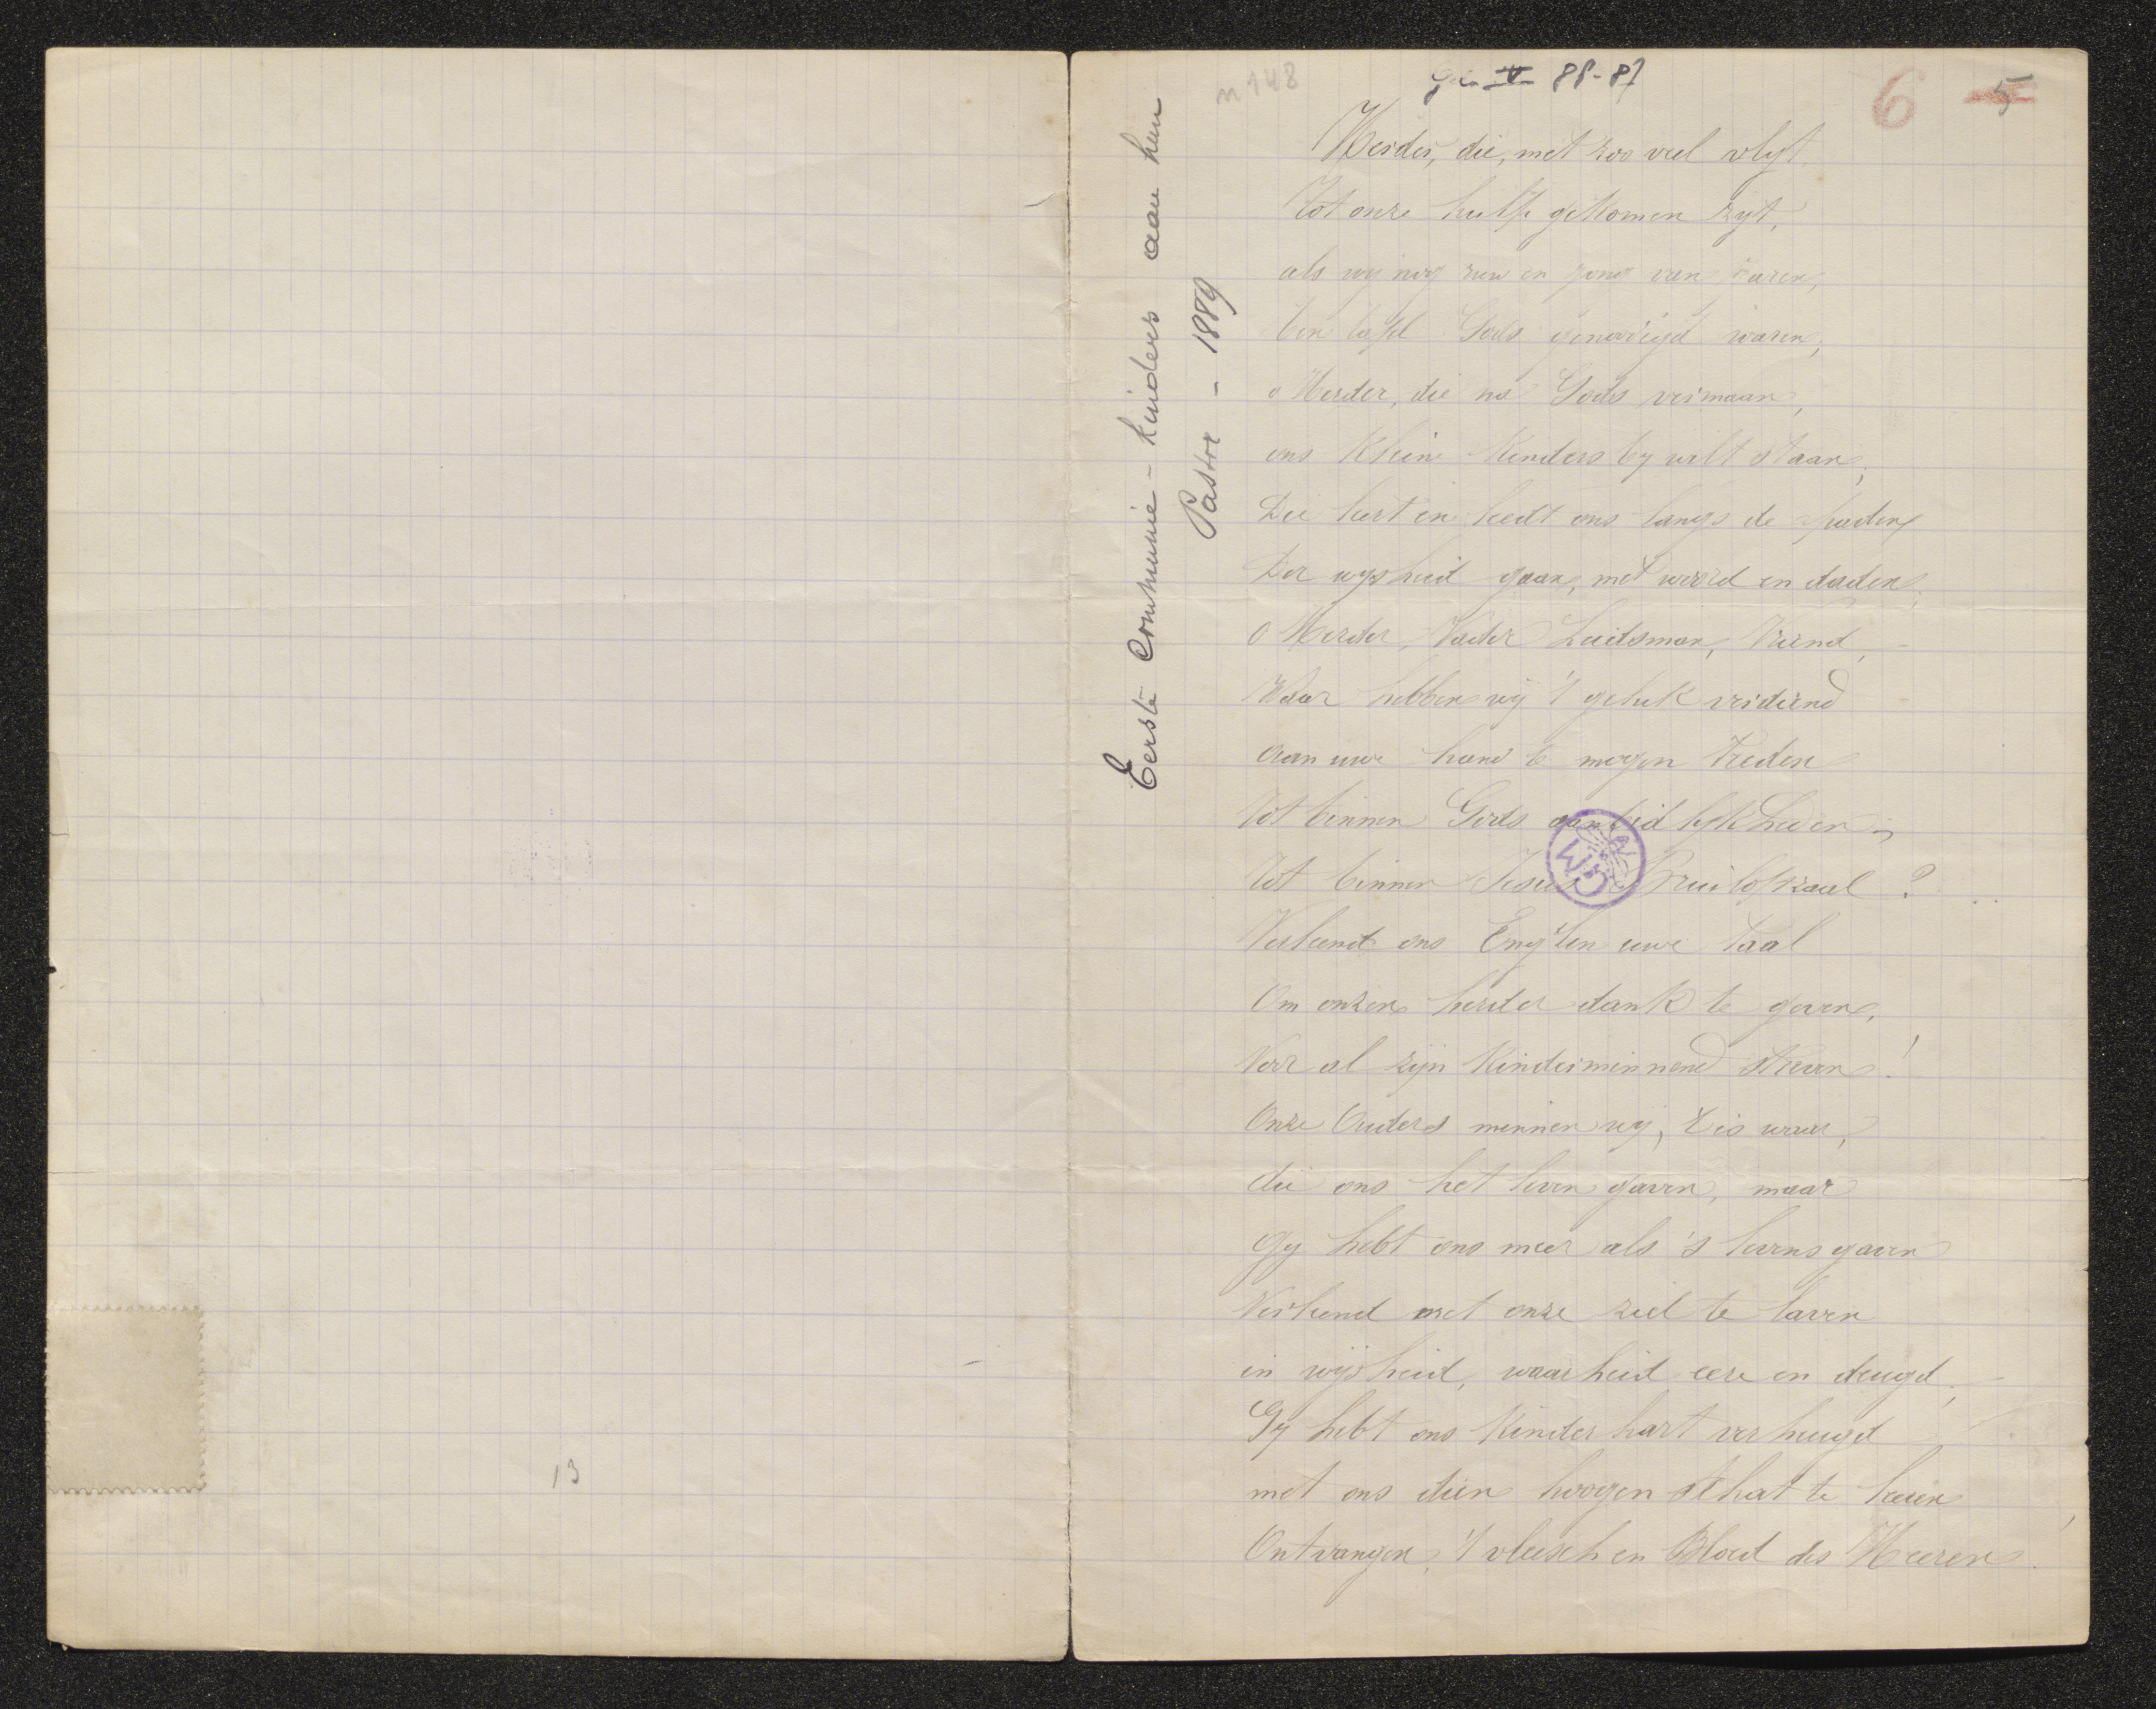 13
n 148
88-87
6 5
Eerste Communie-kinders aan hun
Pastor - 1889
Herder, die, met zoo veel vlijt,
Tot onze hulpe gekomen zijt,
als wij nog ruw en jong van jaren,
ten tafel Gods genoodigd waren,
o Herder, die na Gods vermaan,
ons kleine kinders by wilt staan,
Die leert en leedt ons langs de paden
Der wysheid gaan, met woord en daden,
O Herder, Vader Leidsman, Vriend,
Waar hebben wij 't geluk verdiend
aan uwe hand te mogen treden
Tot binnen Gods aanbidlijkheden,
Tot binnen Jesus Bruilofszaal?
Verleent ons Eng'len uwe taal
Om onzen herder dank te geven,
Voor al zijn kinderminnend streven!
Onze Ouders minnen wij, 't is waar,
die ons het leven gaven, maar
Gy hebt ons meer als 's levens gaven
Verleend met onze ziel te laven
in wijsheid, waarheid eere en deugd,
Gy hebt ons kinder hart verheugd
met ons dien hoogen schat te leeren
Ontvangen, 't vleesch en Bloed des Heeren